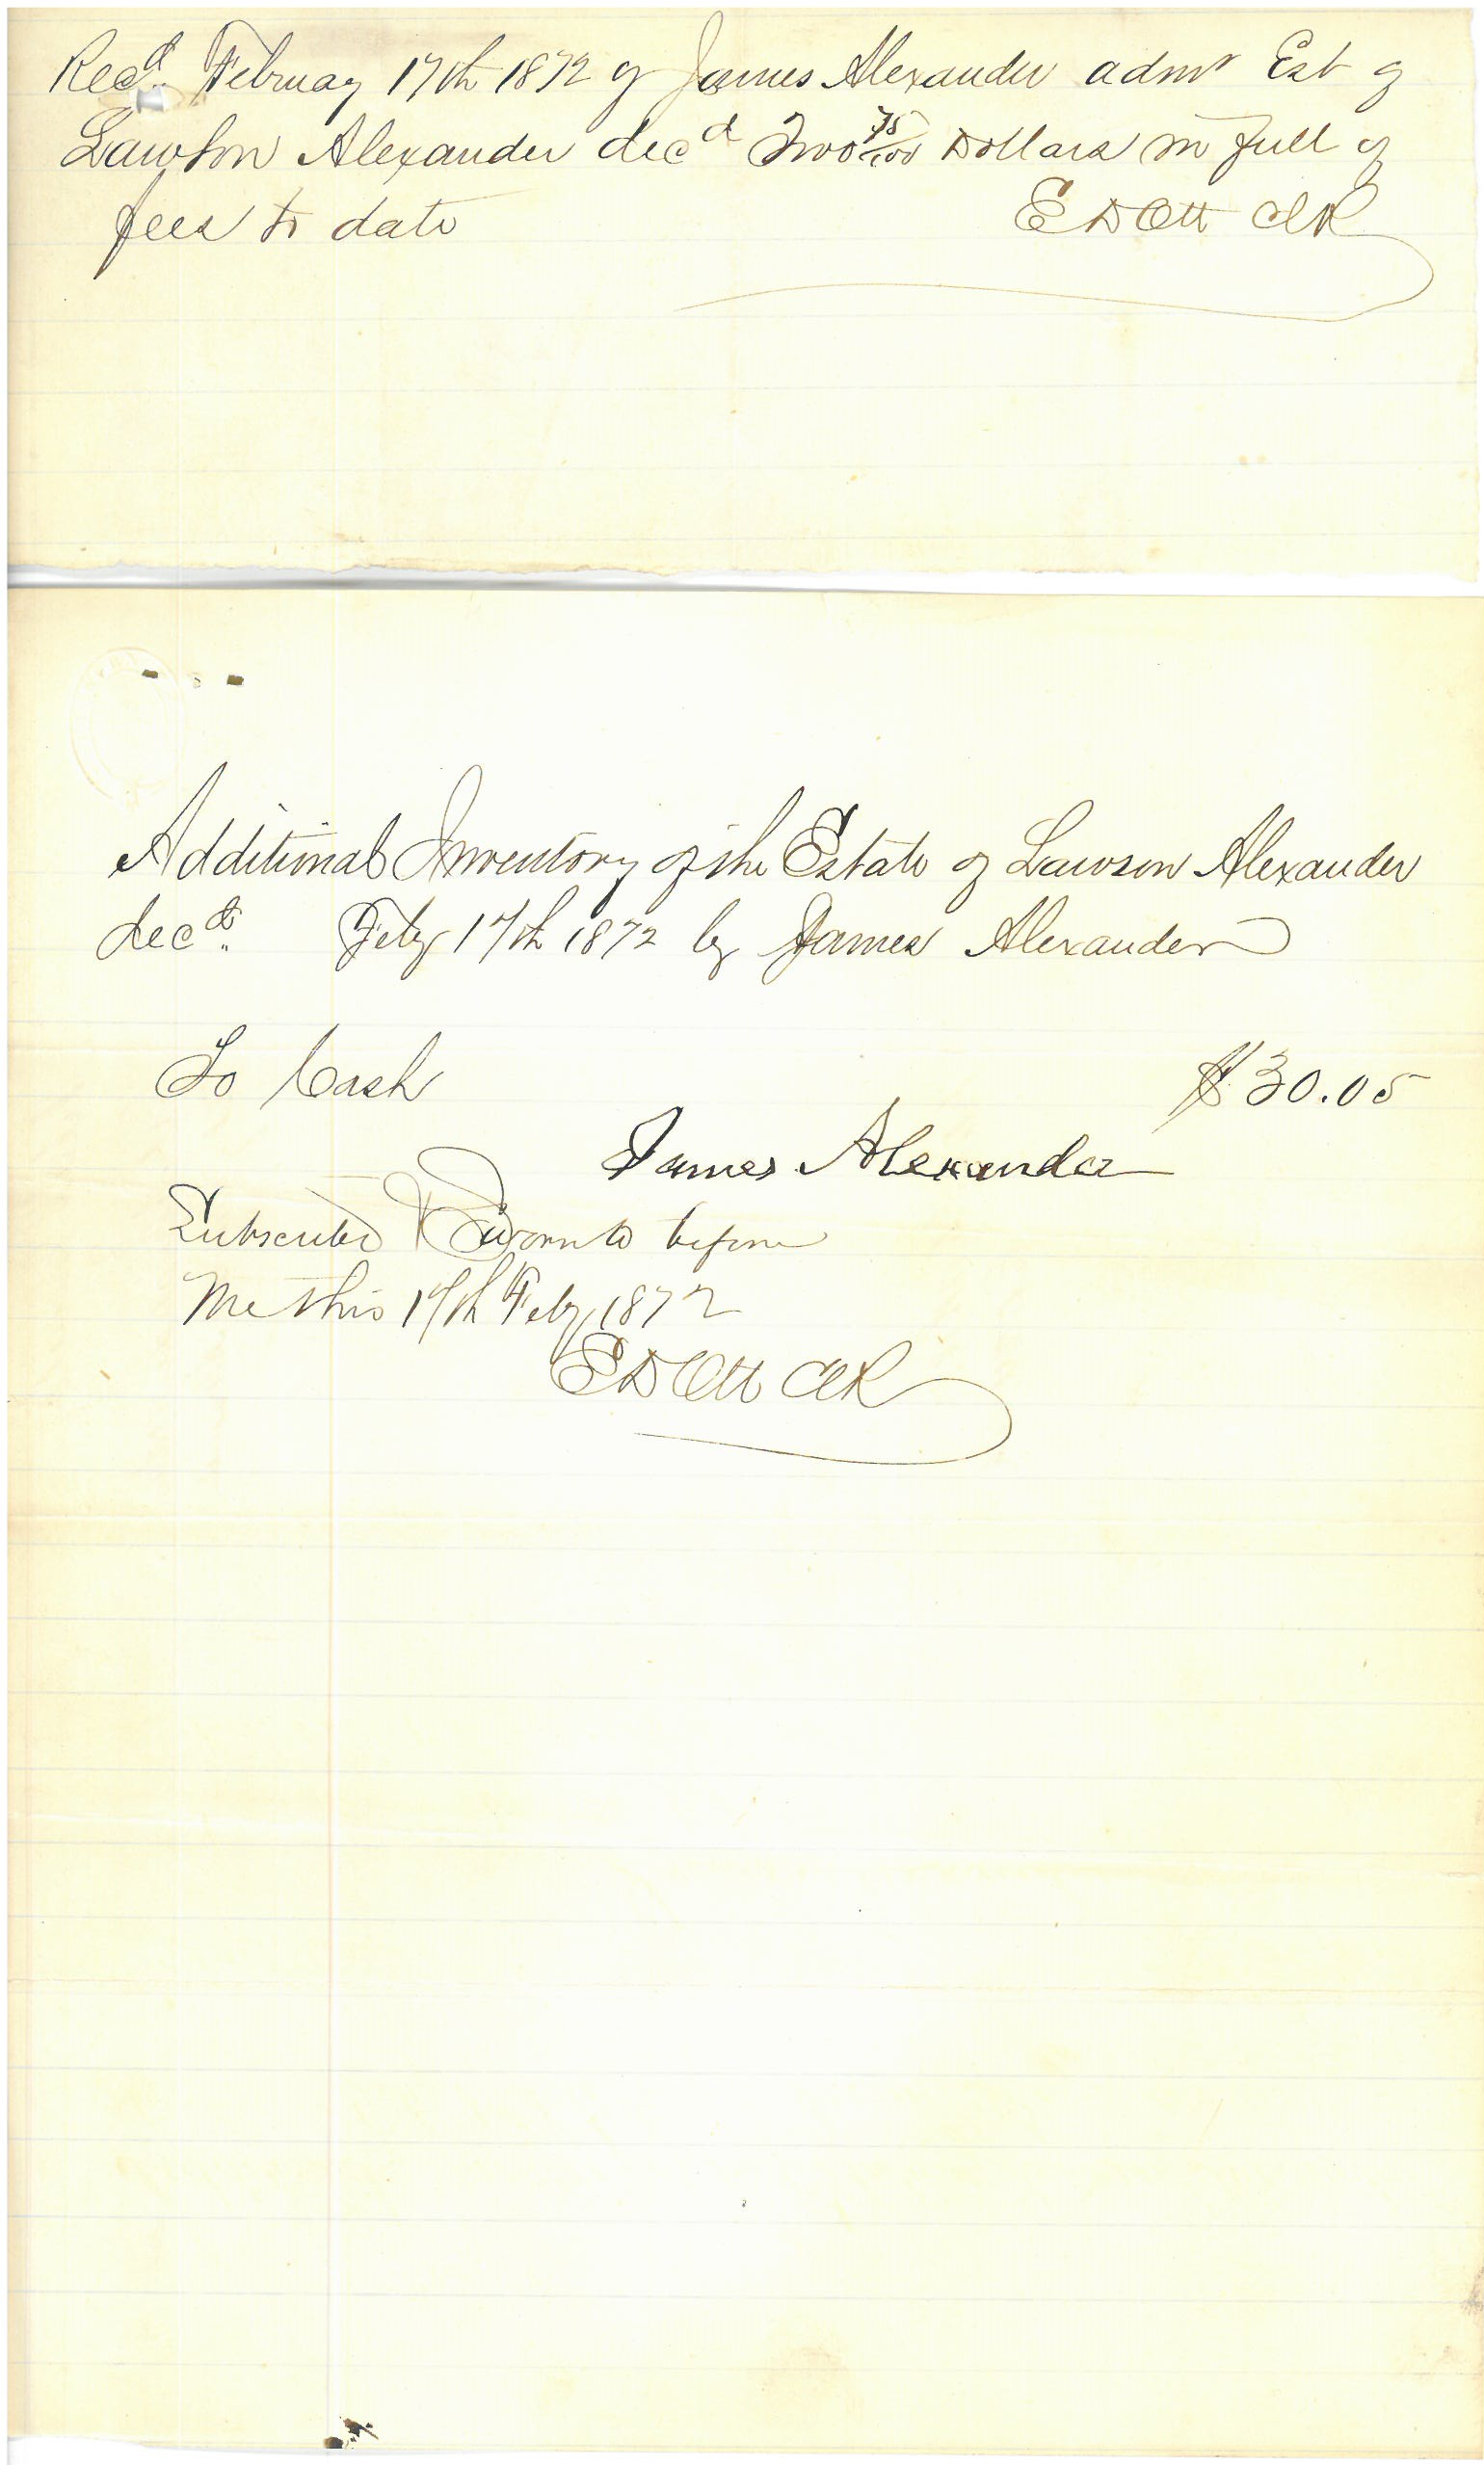 Recd February 17th 1872 of James Alexander admr Est of
Lawson Alexander decd Two 75/100 Dollars in full of
fees to date E D Ott Clk
Additional Inventory of the Estate of Lawson Alexander
decd. Feby 17th 1872 by James Alexander
To Cash $30.05
James Alexander
Subscribed & Sworn to before
Me this 17th Feby 1872
E D Ott Clk